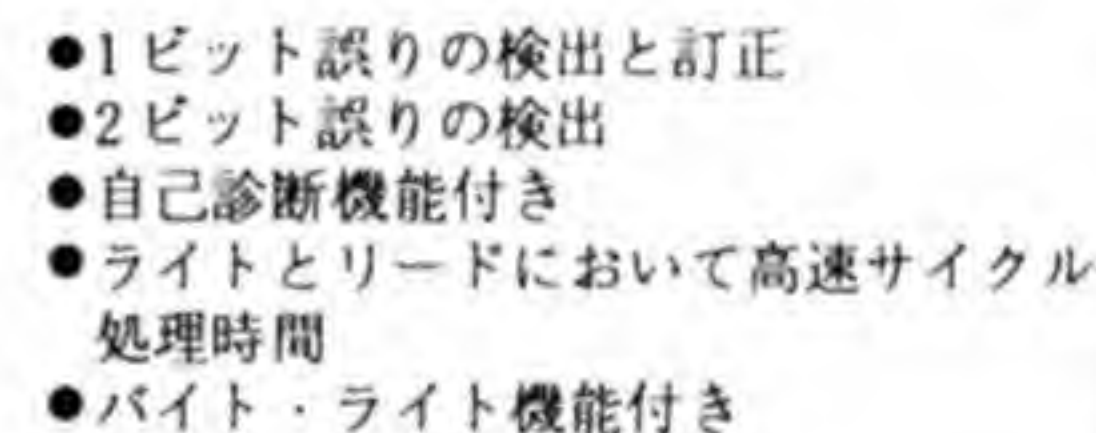 ●1ビット誤りの検出と訂正
●2ビット誤りの検出
●自己診断機能付き
●ライトとリードにおいて高速サイクル
処理時間
●バイト・ライト機能付き